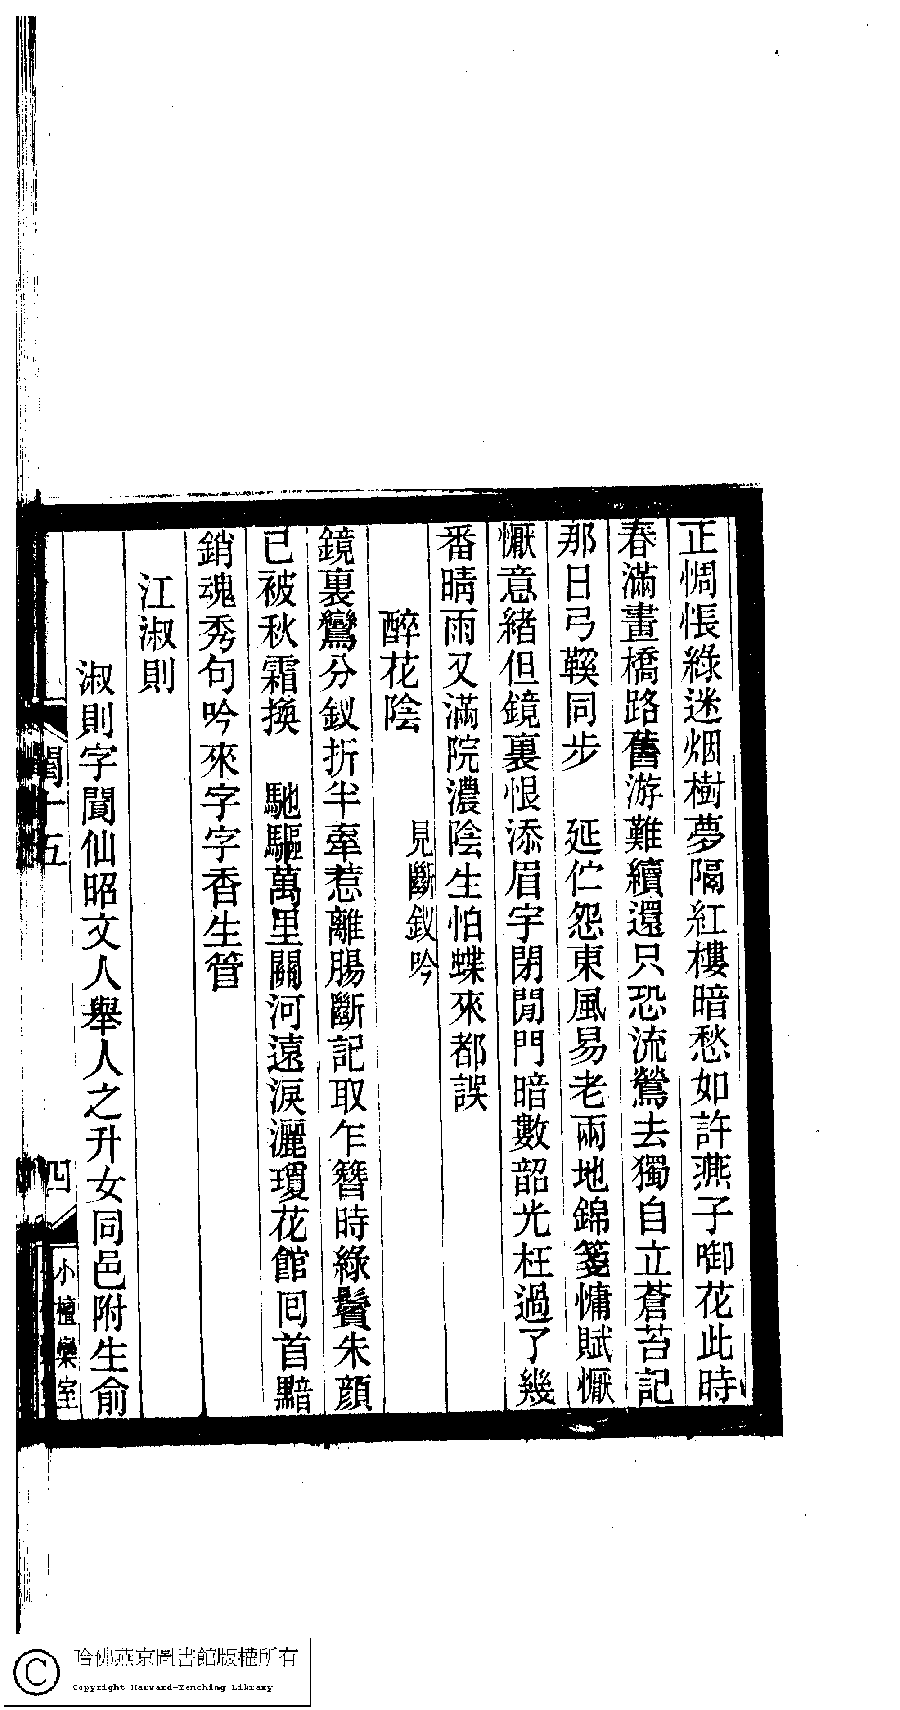 正惆悵綠迷烟樹夢隔紅樓暗愁如許燕子啣花此時
春滿畫橋路舊游難續還只恐流鶯去獨自立蒼苔記
那日弓鞵同步　延伫怨東風易老兩地錦箋慵賦懨
懨意緒但鏡裏恨添眉宇閉閒門暗數韶光枉過了幾
番晴雨又滿院濃陰生怕蝶來都誤
醉花陰　見斷釵吟
鏡裏鸞分釵折半牽惹離腸斷記取乍簪時綠鬢朱顏
已被秋霜換　馳驅萬里關河遠淚灑瓊花館囘首黯
銷魂秀句吟來字字香生管
江淑則
淑則字閬仙昭文人舉人之升女同邑附生俞
閨十五
四
小檀欒室
哈佛燕京圖書館版權所有
Copyright Harvard-Yenching Library